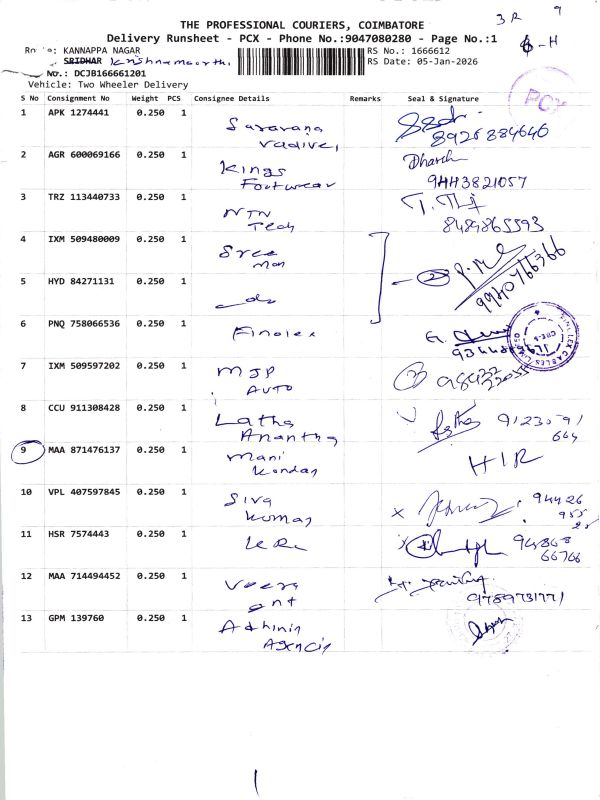 3R 9
THE PROFESSIONAL COURIERS, COIMBATORE
Delivery Runsheet - PCX - Phone No.:9047080280 - Page No.:1
-H
KANNAPPA NAGAR
RS No.: 1666612
SRIDHAR Krishnamoorthi
RS Date: 05-Jan-2026
No.: DCJB166661201
Vehicle: Two Wheeler Delivery
PCX
S No Consignment No Weight PCS Consignee Details Remarks Seal & Signature
1 APK 1274441 0.250 1 Saravana
vadivel 8925884646
2 AGR 600069166 0.250 1 Kings
Footwear 9443821057
3 TRZ 113440733 0.250 1 NTN
Tech 8489865593
4 IXM 509480009 0.250 1 Sree
Man
5 HYD 84271131 0.250 1 do 2 9940766366
6 PNQ 758066536 0.250 1 Finolex
7 IXM 509597202 0.250 1 MJP
AUTO
8 CCU 911308428 0.250 1 Latha
Anantha
9 MAA 871476137 0.250 1 Mani
Kandan HIR
10 VPL 407597845 0.250 1 Siva
Kumar 94426
955
11 HSR 7574443 0.250 1
66766
12 MAA 714494452 0.250 1 Veera
9789731771
13 GPM 139760 0.250 1 Adhinin
Agencis